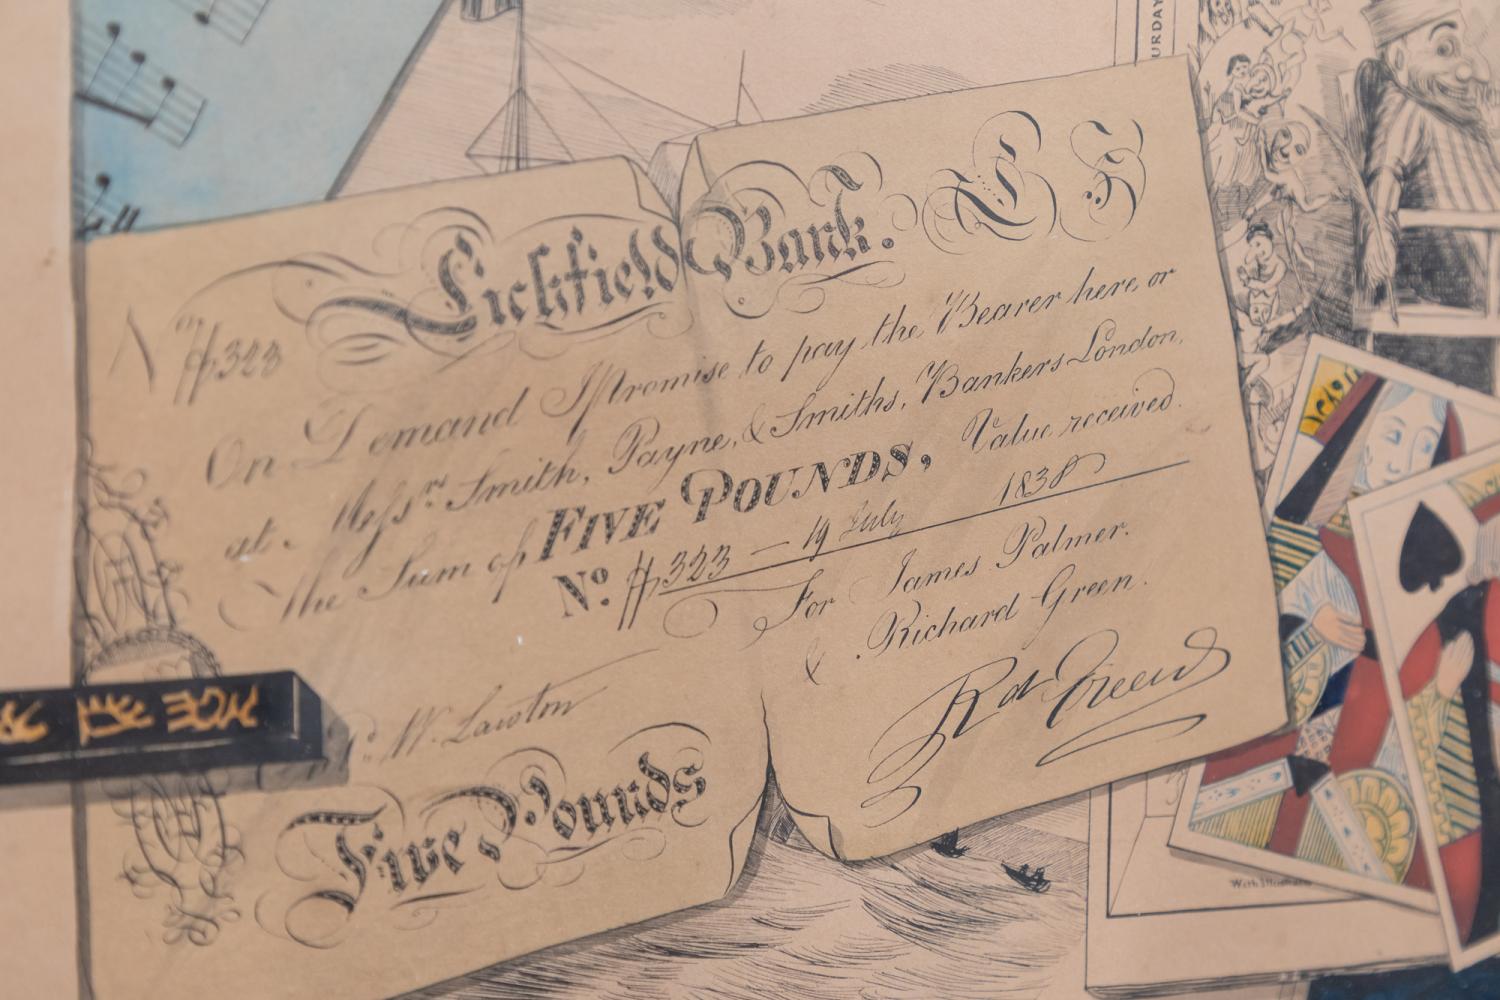 Lichfield Bank.
No ₶323
On Demand I promise to pay the Bearer here or
at Messrs. Smith, Payne, & Smiths, Bankers London,
The Sum of FIVE POUNDS, Value received.
No. ₶323 — 19 July 1838
For James Palmer.
& Richard Green.
W. Lawton
Rd Green
Five Pounds
URDAY
With Illustra